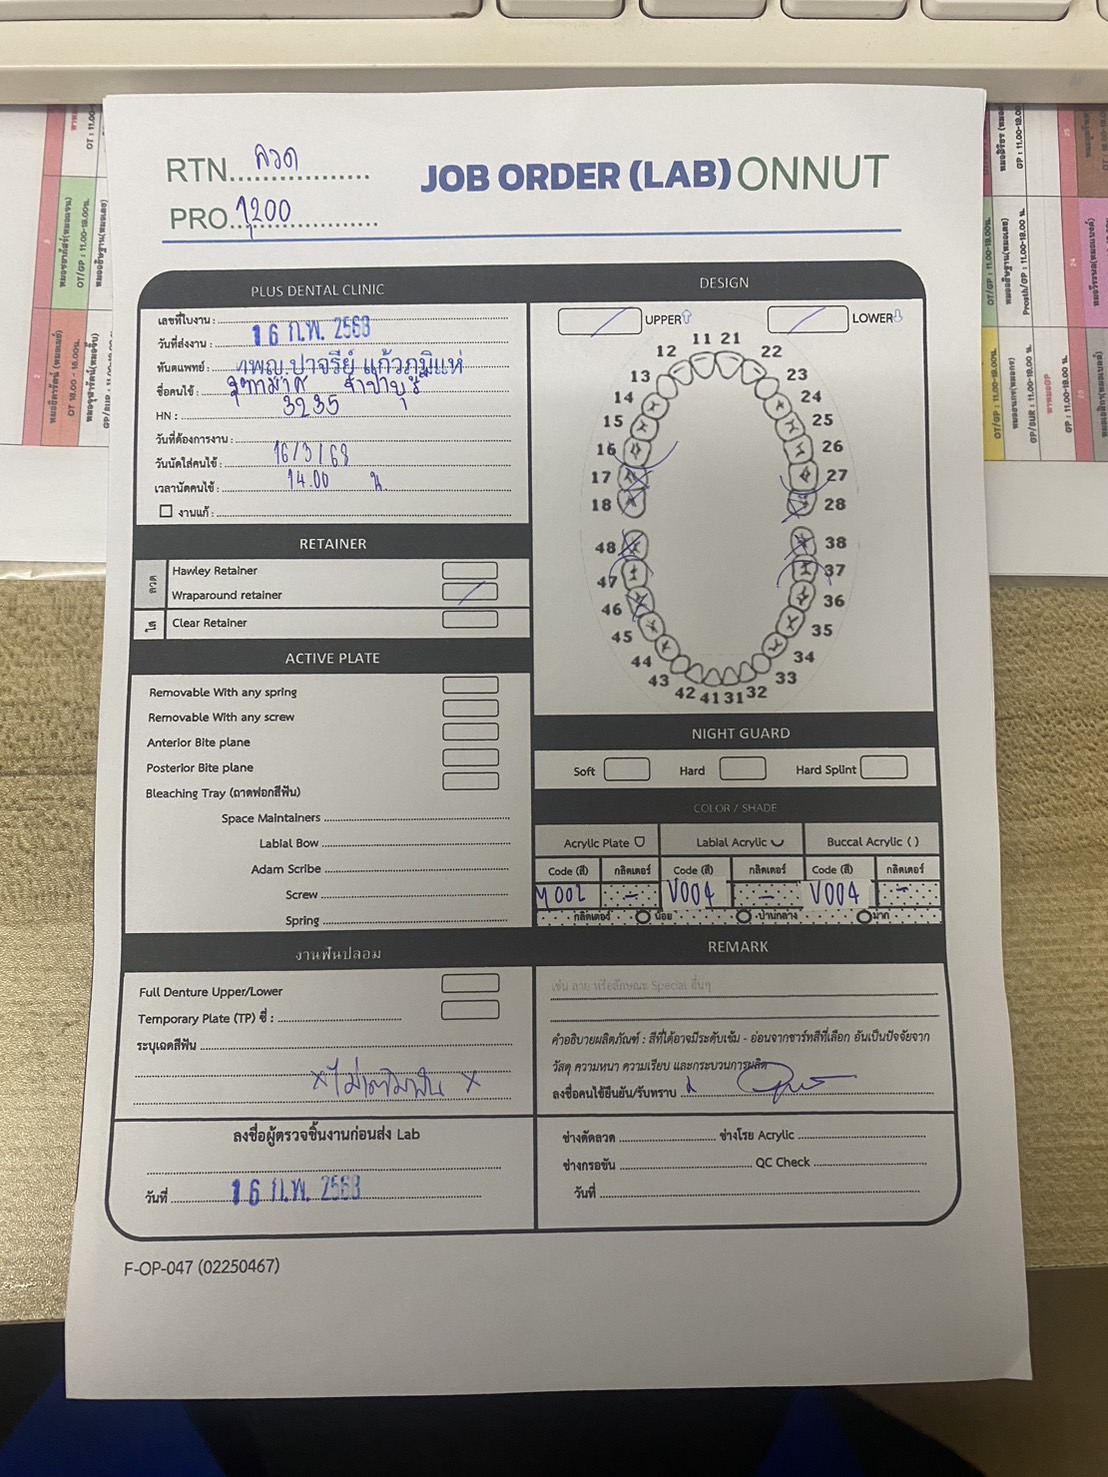 RTN. ลวด
JOB ORDER (LAB) ONNUT
PRO. 1,200
PLUS DENTAL CLINIC
เลขที่ใบงาน :
วันที่ส่งงาน : 16 ก.พ. 2568
ทันตแพทย์ : ทพญ.ปาจรีย์ แก้วภูมิแห่
ชื่อคนไข้ : จุฑามาศ จำปาบุรี
HN : 3235
วันที่ต้องการงาน :
วันนัดใส่คนไข้ : 16/3/68
เวลานัดคนไข้ : 14.00 น.
งานแก้ :
RETAINER
ลวด
Hawley Retainer
Wraparound retainer
ใส
Clear Retainer
ACTIVE PLATE
Removable With any spring
Removable With any screw
Anterior Bite plane
Posterior Bite plane
Bleaching Tray (ถาดฟอกสีฟัน)
Space Maintainers
Labial Bow
Adam Scribe
Screw
Spring
งานฟันปลอม
Full Denture Upper/Lower
Temporary Plate (TP) ซี่ :
ระบุเฉดสีฟัน
*ไม่เติมฟัน *
ลงชื่อผู้ตรวจชิ้นงานก่อนส่ง Lab
วันที่ 16 ก.พ. 2568
DESIGN
UPPER LOWER
11 21
12 22
13 23
14 24
15 25
16 26
17 27
18 28
48 38
47 37
46 36
45 35
44 34
43 33
42 41 31 32
NIGHT GUARD
Soft Hard Hard Splint
COLOR / SHADE
Acrylic Plate Labial Acrylic Buccal Acrylic ( )
Code (สี) กลิตเตอร์ Code (สี) กลิตเตอร์ Code (สี) กลิตเตอร์
M002 - V004 - V004 -
กลิตเตอร์ น้อย ปานกลาง มาก
REMARK
เช่น ลาย หรือลักษณะ Special อื่นๆ
คำอธิบายผลิตภัณฑ์ : สีที่ได้อาจมีระดับเข้ม - อ่อนจากชาร์ทสีที่เลือก อันเป็นปัจจัยจาก
วัสดุ ความหนา ความเรียบ และกระบวนการผลิต
ลงชื่อคนไข้ยืนยัน/รับทราบ
ช่างดัดลวด ช่างโรย Acrylic
ช่างกรอขัน QC Check
วันที่
F-OP-047 (02250467)